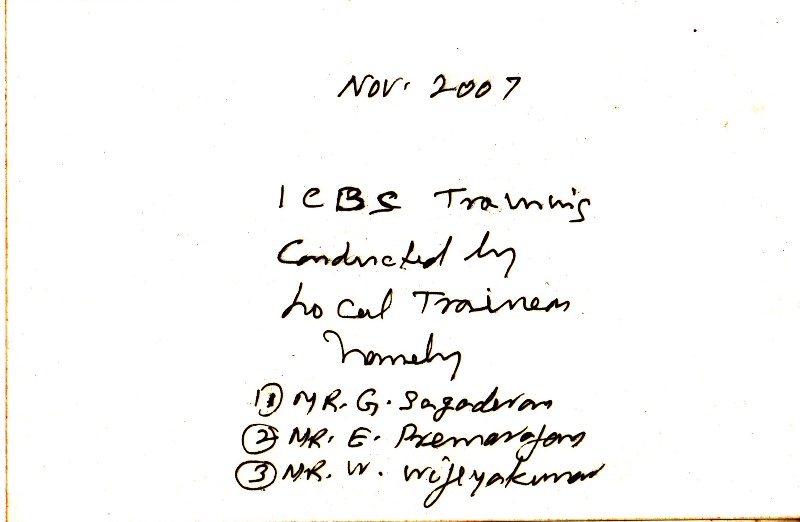 Nov. 2007
ICBS Training
Conducted by
Local Trainers
Namely
1) MR. G. Sagadevan
2 MR. E. Premarajan
3 MR. W. Wijeyakumar